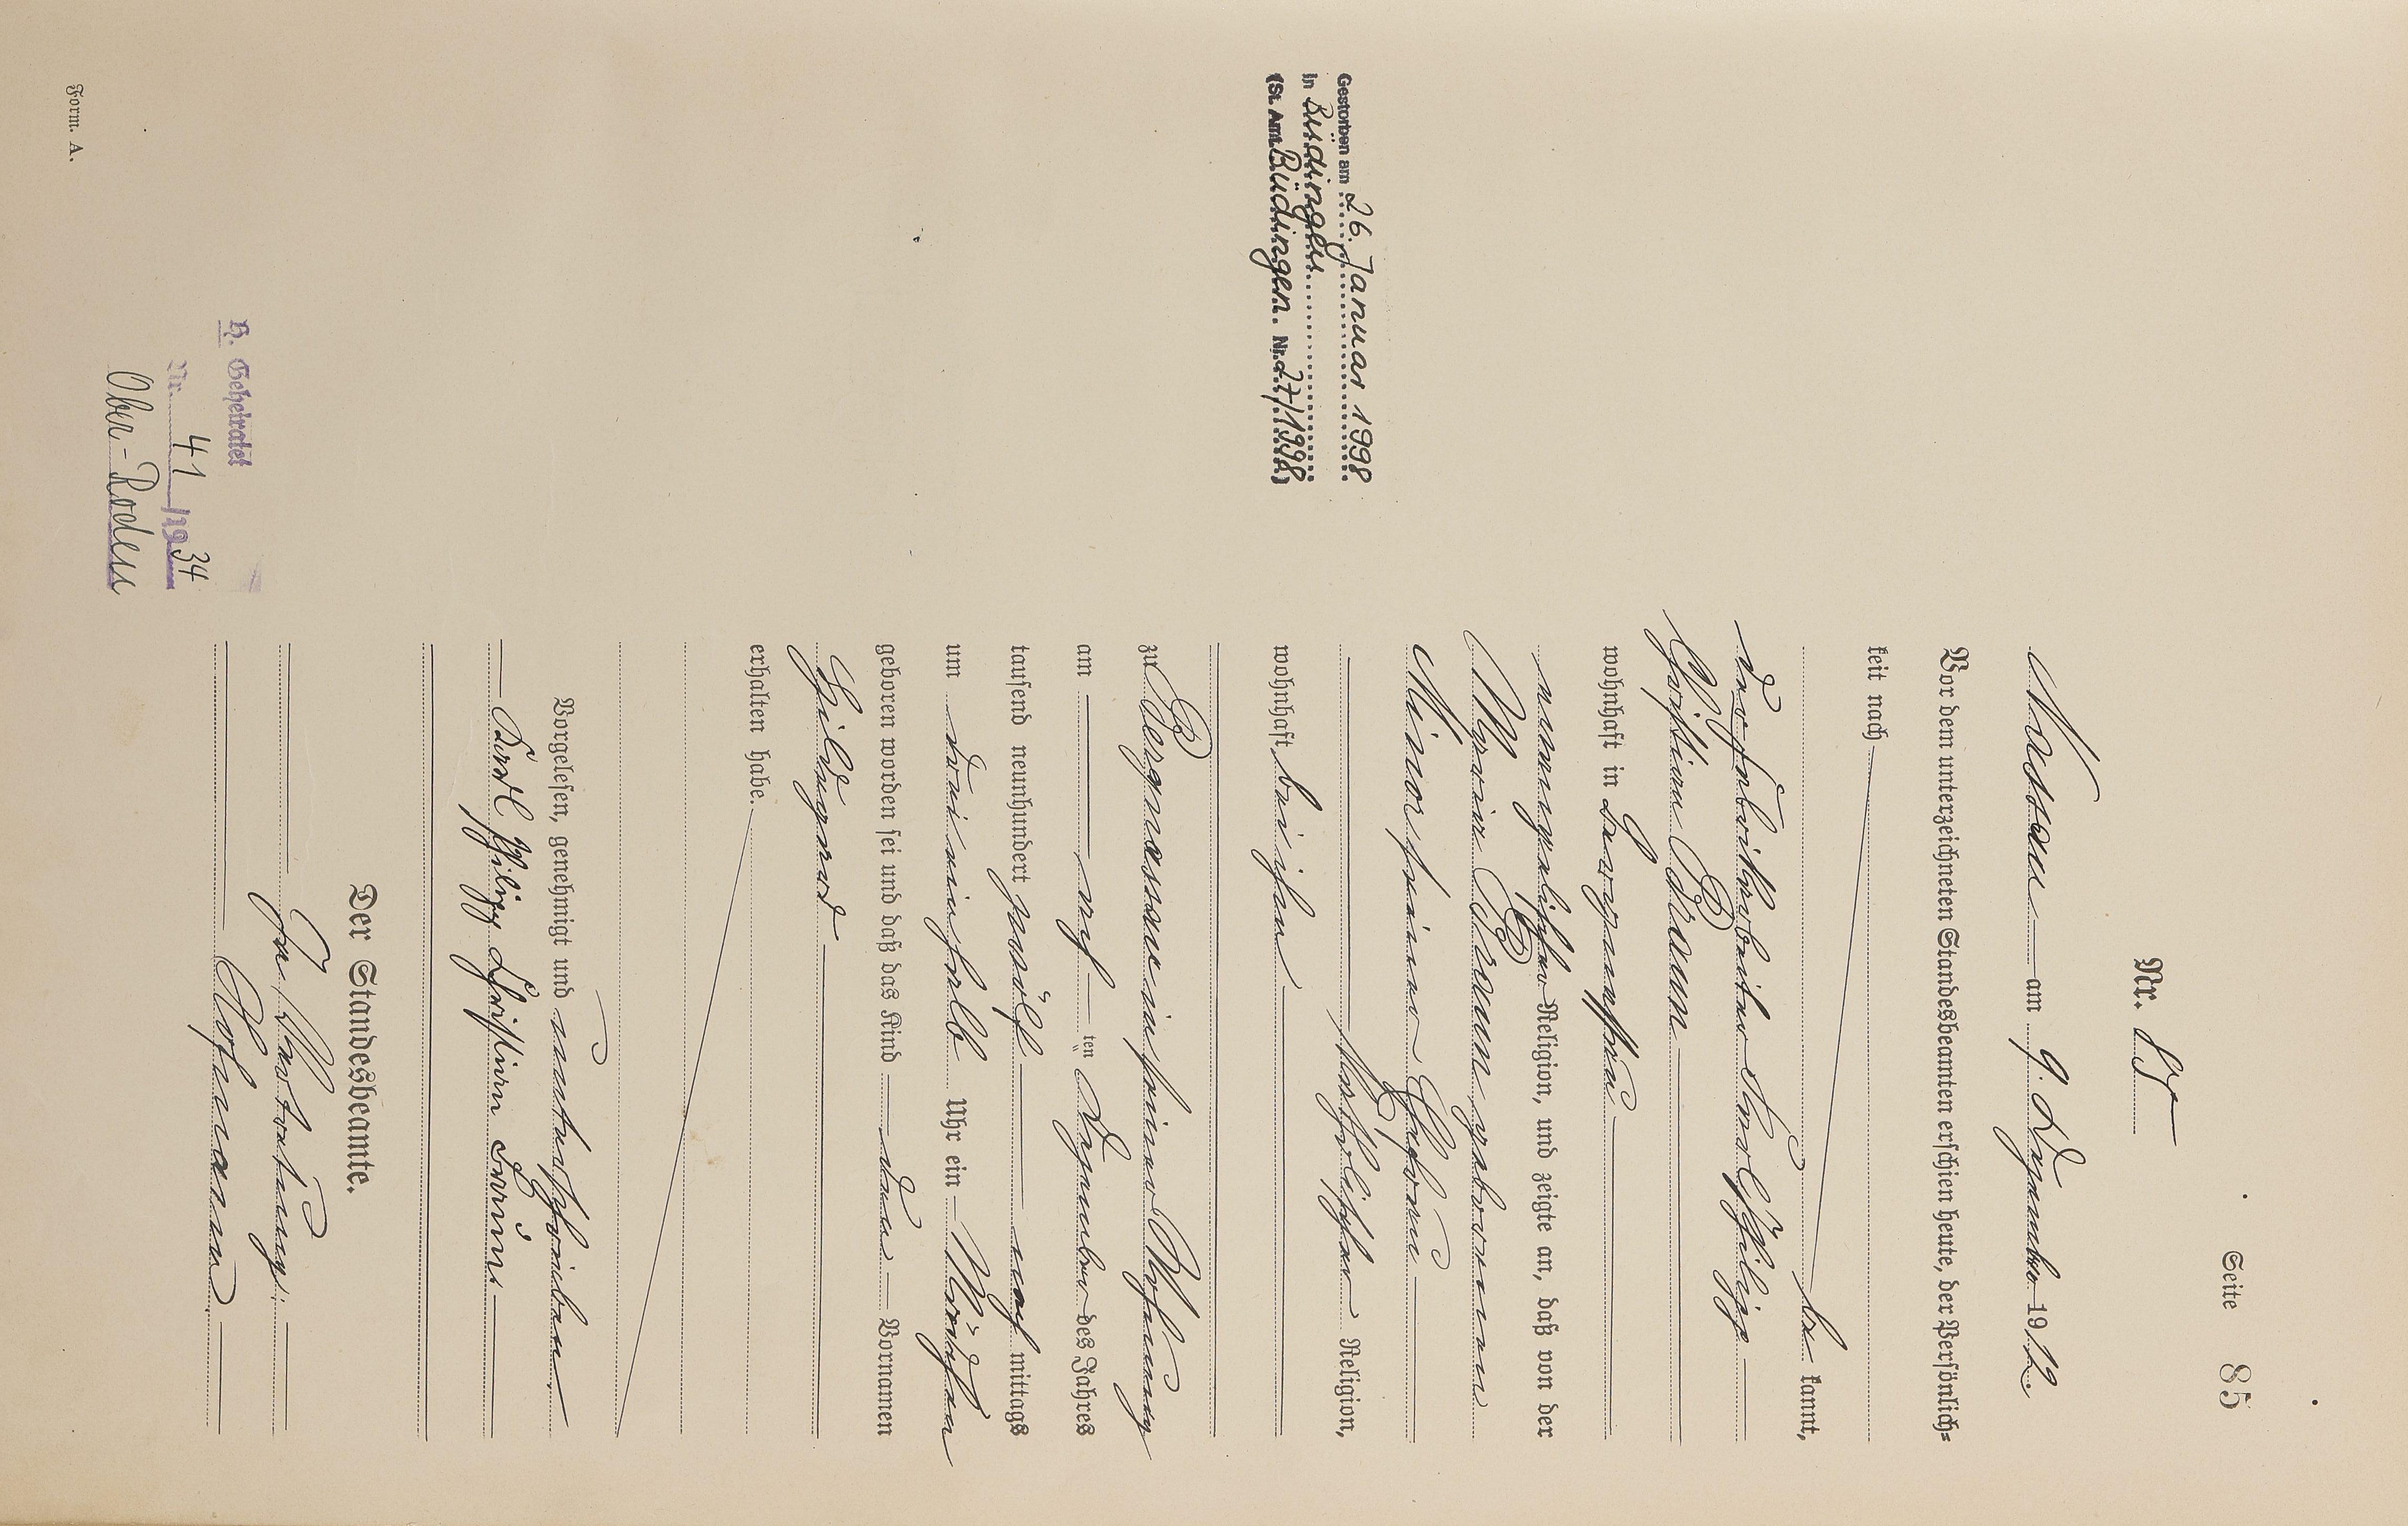 Seite 85
Nr. 85
Nassau am 9. Dezember 1912.
Vor dem unterzeichneten Standesbeamten erschien heute, der Persönlich-
keit nach
be kannt,
der Fabrikarbeiter Karl Philipp
Christian Braun
wohnhaft in
evangelischer Religion, und zeigte an, daß von der
Maria Braun geborenen
Minor seiner Ehefrau
katholischer Religion,
wohnhaft bei ihm
zu Bergnassau in seiner Wohnung
am acht ten Dezember des Jahres
tausend neunhundert zwölf nach mittags
um drei einhalb Uhr ein Mädchen
geboren worden sei und daß das Kind den Vornamen
Hildegard
erhalten habe.
Vorgelesen, genehmigt und unterschrieben
Karl Philipp Christian Braun
Der Standesbeamte.
In Vertretung:
Hofmann
Gestorben am 26. Januar 1998
in Büdingen
(St. Amt Büdingen. Nr. 27/1998)
H. Geheiratet
Nr. 41/1934
Ober-Roden
Form. A.